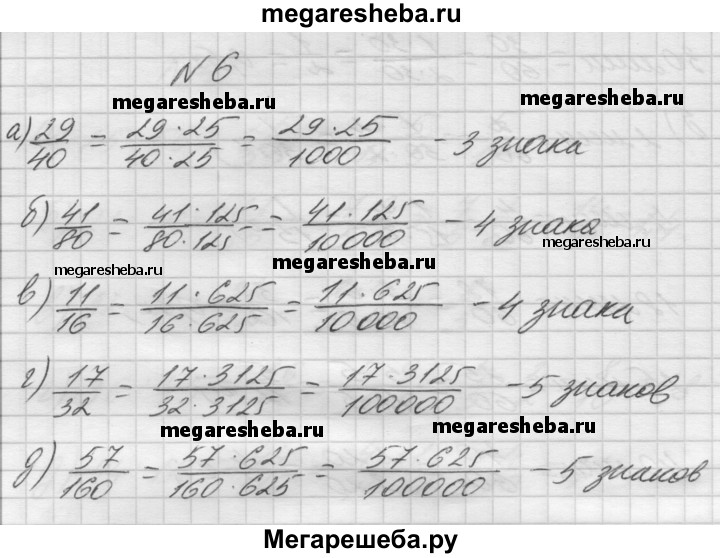 megaresheba.ru
N 6
megaresheba.ru megaresheba.ru
а) 29/40 = 29·25/40·25 = 29·25/1000 - 3 знака
б) 41/80 = 41·125/80·125 = 41·125/10000 - 4 знака
megaresheba.ru
megaresheba.ru megaresheba.ru
в) 11/16 = 11·625/16·625 = 11·625/10000 - 4 знака
megaresheba.ru
г) 17/32 = 17·3125/32·3125 = 17·3125/100000 - 5 знаков
megaresheba.ru megaresheba.ru
д) 57/160 = 57·625/160·625 = 57·625/100000 - 5 знаков
Мегарешеба.ру